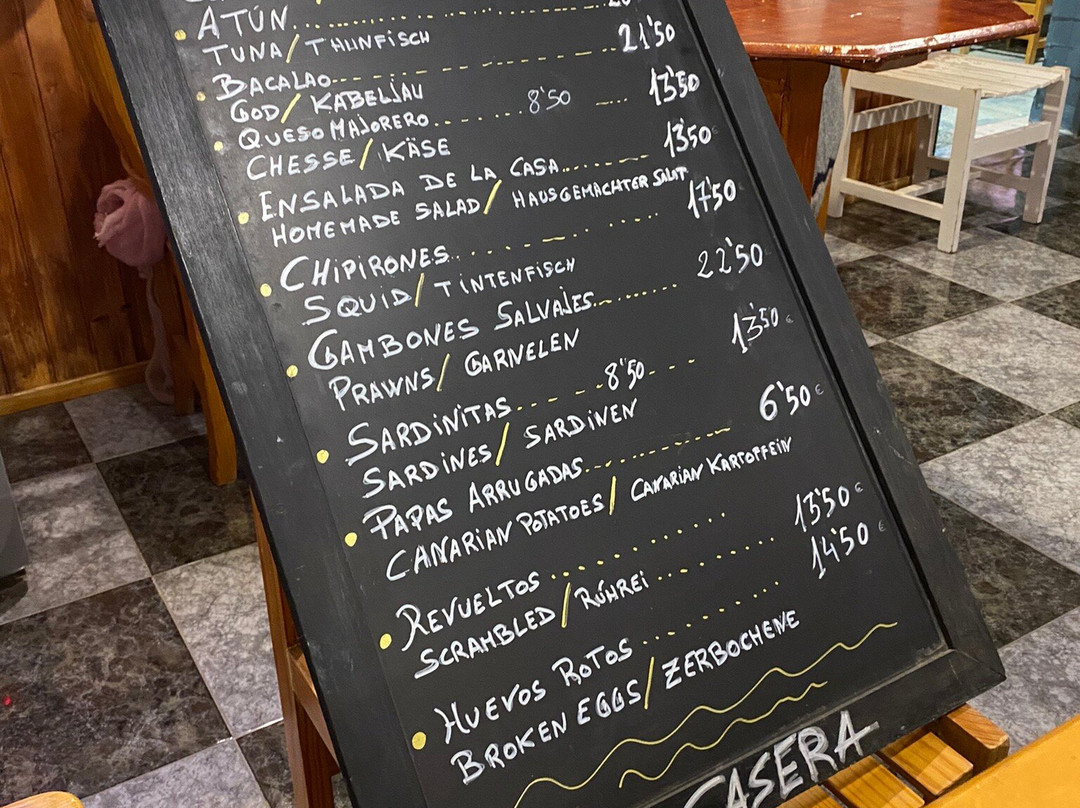 ATÚN
TUNA/THUNFISCH
BACALAO 21'50
GOD/KABELJAU
QUESO MAJORERO 8'50 13'50
CHESSE/KÄSE
ENSALADA DE LA CASA 13'50
HOMEMADE SALAD/HAUSGEMACHTER SALAT
CHIPIRONES 17'50
SQUID/TINTENFISCH
GAMBONES SALVAJES 22'50
PRAWNS/GARNELEN
SARDINITAS 8'50 13'50€
SARDINES/SARDINEN
PAPAS ARRUGADAS 6'50€
CANARIAN POTATOES/CANARIAN KARTOFFEIN
REVUELTOS 13'50€
SCRAMBLED/RÜHREI
HUEVOS ROTOS 14'50€
BROKEN EGGS/ZERBOCHENE
CASERA